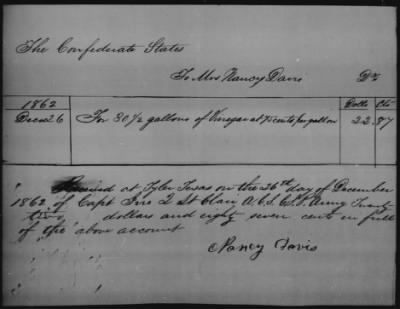 The Confederate States
To Mrs Nancy Davis Dr
Dolls Cts
1862
Decem 26 For 30 1/2 gallons of Vinegar at 75 cents per gallon 22.87
Received at Tyler Texas on the 26th day of December
1862 of Capt Jno St Clair A.C.S. C.S. Army Twenty
two dollars and eighty seven cents in full
of the above account
Nancy Davis